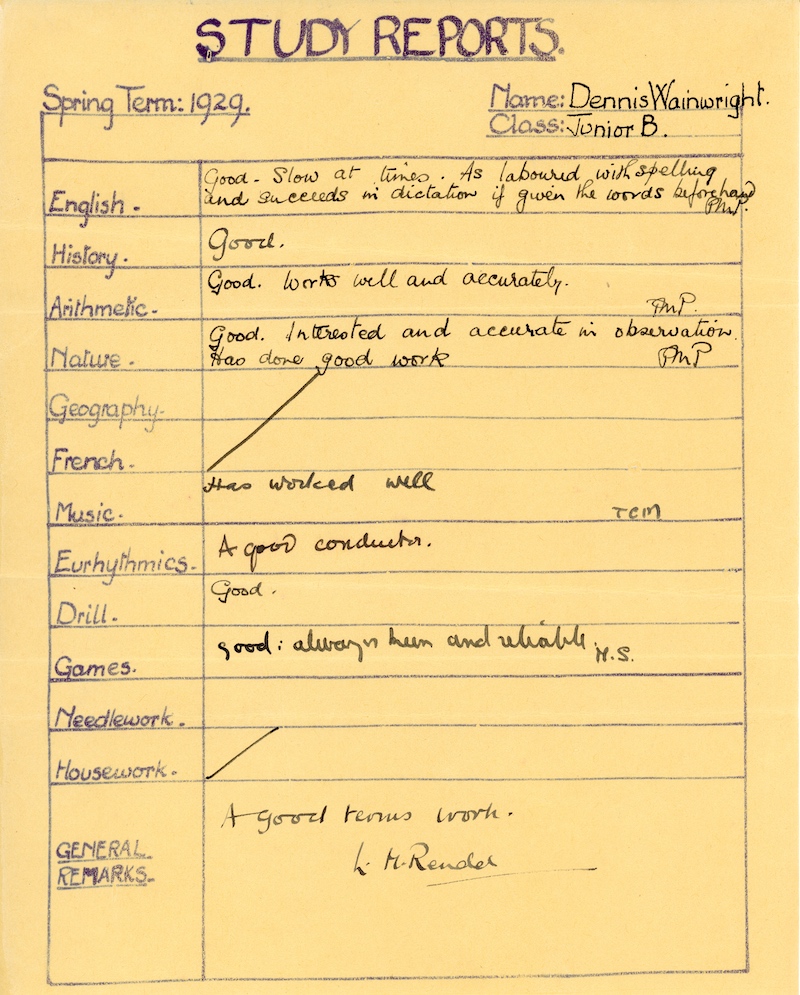 STUDY REPORTS.
Spring Term: 1929.
Name: Dennis Wainwright.
Class: Junior B.
English - Good - Slow at times. As laboured with spelling
and succeeds in dictation if given the words beforehand
PMP.
History. Good.
Arithmetic - Good. Works well and accurately.
PMP.
Nature - Good. Interested and accurate in observation.
Has done good work PMP
Geography-
French -
Music. Has worked well
TCM
Eurhythmics. A good conductor.
Drill. Good.
Games. good: always keen and reliable. H.S.
Needlework.
Housework.
GENERAL
REMARKS- A good terms work.
L. H. Rendel